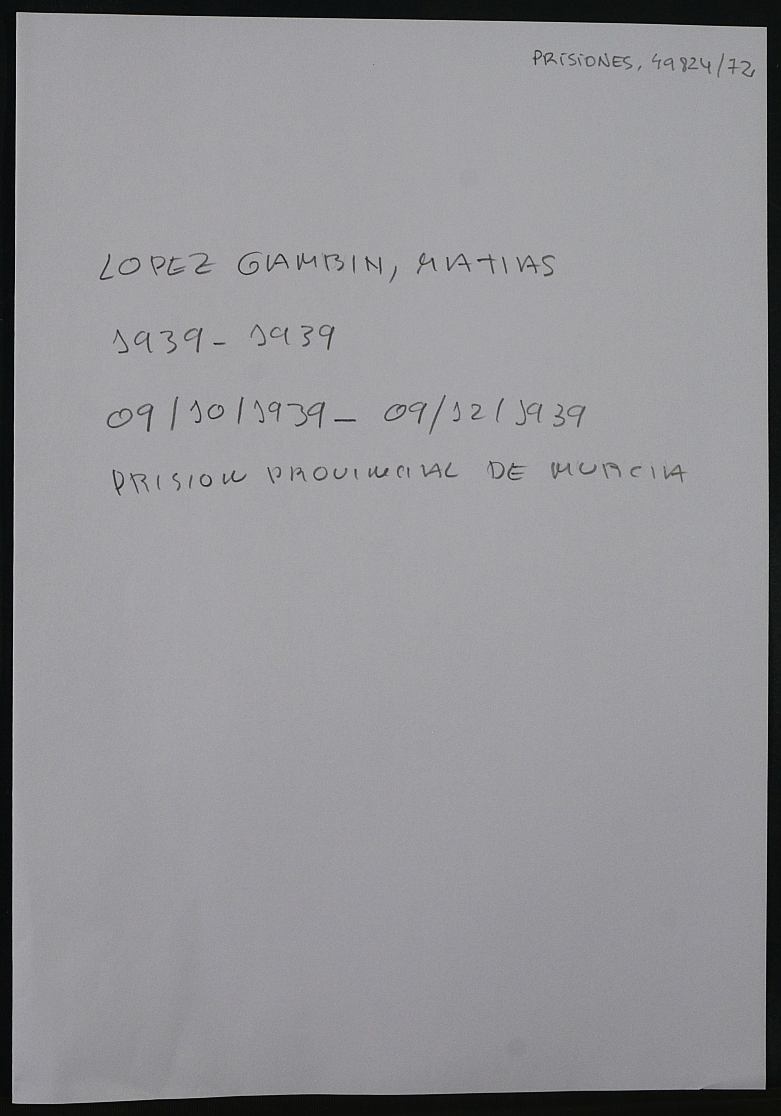 PRISIONES, 49824/72
LOPEZ GAMBIN, MATIAS
1939- 1939
09/10/1939- 09/12/1939
PRISION PROVINCIAL DE MURCIA